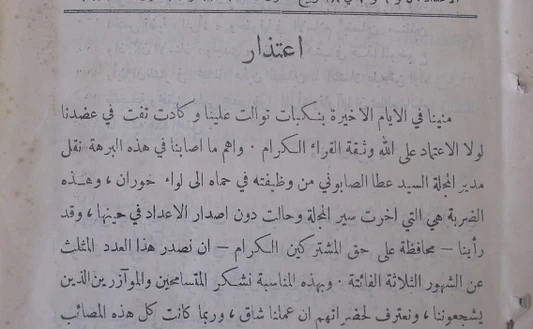 اعتذار
منينا في الايام الاخيرة بنكبات توالت علينا وكادت تفت في عضدنا
لولا الاعتماد على الله وثقة القراء الكرام . واهم ما اصابنا في هذه البرهة نقل
مدير المجلة السيد عطا الصابوني من وظيفته في حماه الى لواء حوران ، وهذه
الضربة هي التي اخرت سير المجلة وحالت دون اصدار الاعداد في حينها ، وقد
رأينا — محافظة على حق المشتركين الكرام — ان نصدر هذا العدد المثلث
عن الشهور الثلاثة الفائتة . وبهذه المناسبة نشكر المتسامحين والموآزرين الذين
يشجعوننا ، ونعترف لحضراتهم ان عملنا شاق ، وربما كانت كل هذه المصائب